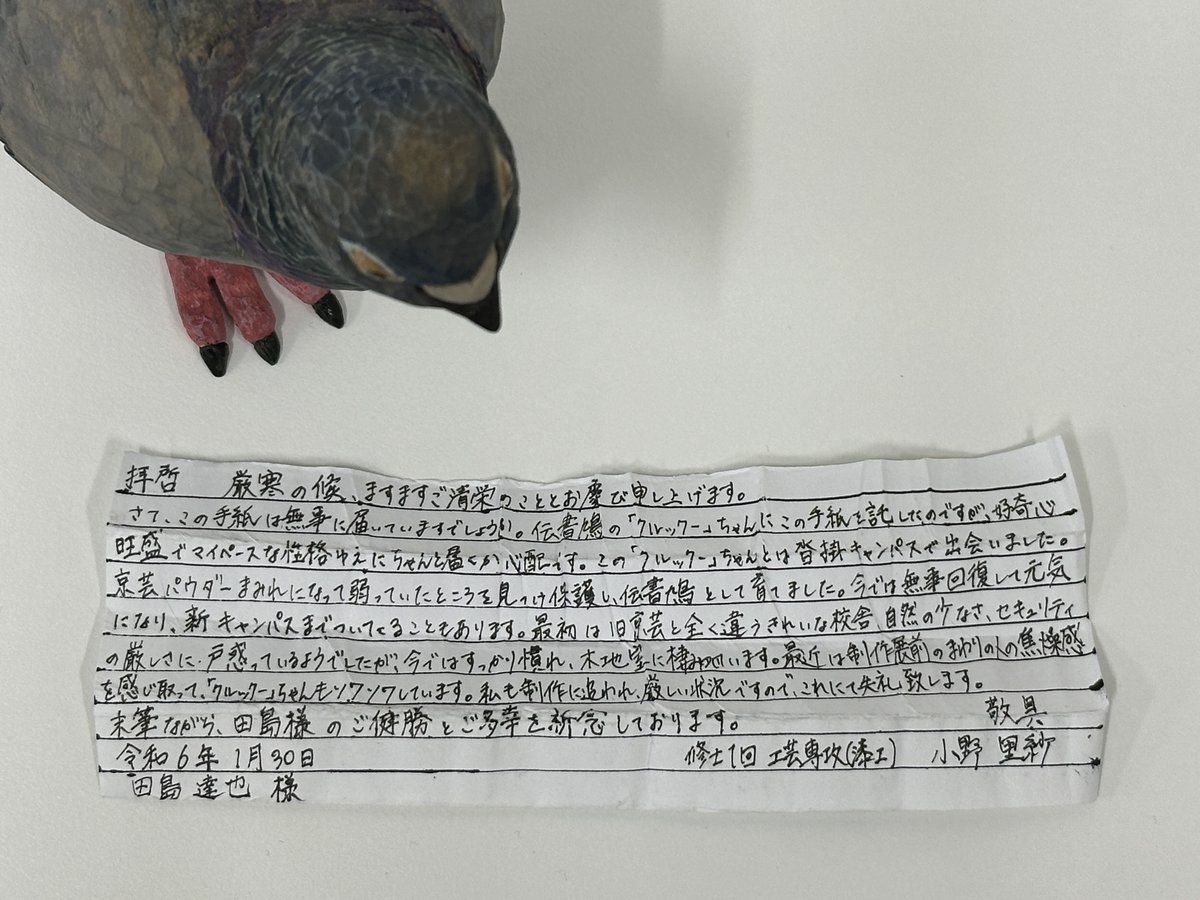 拝啓　厳寒の候、ますますご清栄のこととお慶び申し上げます。
さて、この手紙は無事に届いていますでしょうか。伝書鳩の「クルックー」ちゃんにこの手紙を託したのですが、好奇心
旺盛でマイペースな性格ゆえにちゃんと届くか心配です。この「クルックー」ちゃんとは沓掛キャンパスで出会いました。
京芸パウダーまみれになって弱っていたところを見つけ保護し、伝書鳩として育てました。今では無事回復して元気
になり、新キャンパスまでついてくることもあります。最初は旧京芸と全く違うきれいな校舎、自然の少なさ、セキュリティ
の厳しさに、戸惑っているようでしたが、今ではすっかり慣れ、木地室に棲みついています。最近は制作展前のまわりの人の焦燥感
を感じ取って、「クルックー」ちゃんもソワソワしています。私も制作に追われ、厳しい状況ですので、これにて失礼致します。
敬具
末筆ながら、田島様のご健勝とご多幸を祈念しております。
令和6年1月30日　修士1回 工芸専攻(漆工)　小野 里紗
田島 達也 様